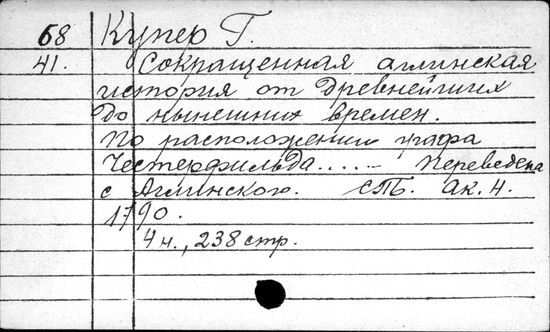 68 Купер Г.
41. Сокращенная аглинская
история от древнейших
до нынешних времен.
По расположению графа
Честерфильда..... Переведена
с Аглинского. СПБ. Ак. Н.
1790.
4 н., 238 стр.